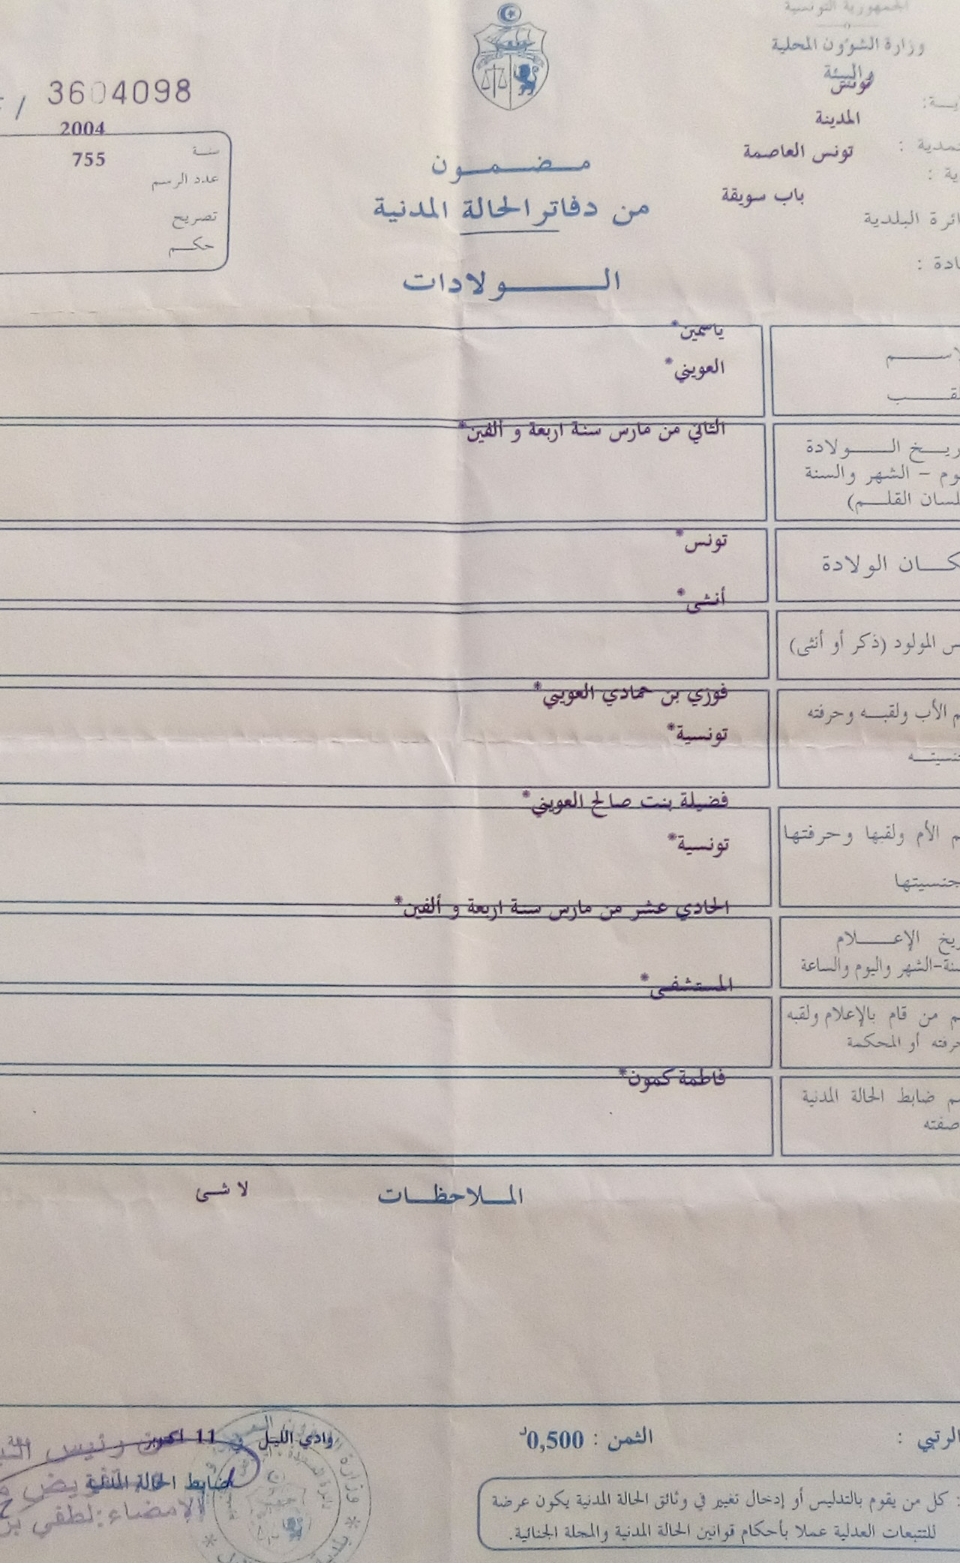 الجمهورية التونسية
وزارة الشؤون المحلية
والبيئة
تونس
المدينة
تونس العاصمة
باب سويقة
ائرة البلدية
/ 3604098
2004
سنة
755
عدد الرسم
تصريح
حكم
مضمون
من دفاتر الحالة المدنية
الولادات
ياسمين*
العويني*
الثاني من مارس سنة اربعة و ألفين*
ريخ الولادة
وم - الشهر والسنة
لسان القلم)
تونس*
كان الولادة
أنثى*
س المولود (ذكر أو أنثى)
فوزي بن حمادي العويني*
م الأب ولقبه وحرفته
تونسية*
نسيته
فضيلة بنت صالح العويني*
م الأم ولقبها وحرفتها
تونسية*
جنسيتها
الحادي عشر من مارس سنة اربعة و ألفين*
ريخ الإعلام
سنة-الشهر واليوم والساعة
المستشفى*
م من قام بالإعلام ولقبه
حرفته أو المحكمة
فاطمة كمون*
م ضابط الحالة المدنية
صفته
الملاحظات
لا شى
الرتبي :
الثمن : 0,500د
وادي الليل في 11 اكتوبر
ضابط الحالة المدنية
عن رئيس
الإمضاء: لطفي
: كل من يقوم بالتدليس أو إدخال تغيير في وثائق الحالة المدنية يكون عرضة
للتتبعات العدلية عملا بأحكام قوانين الحالة المدنية والمجلة الجنائية.